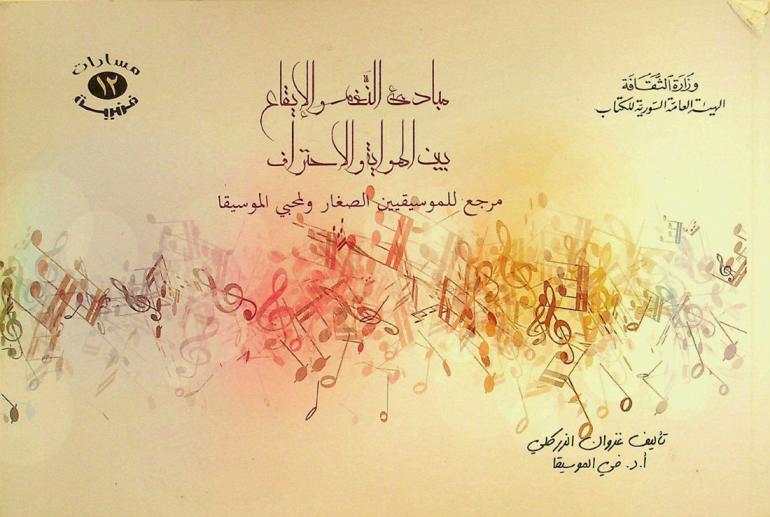 وزارة الثقافة
الهيئة العامة السورية للكتاب
مسارات
١٢
فنية
مبادئ النغم والإيقاع
بين الهواية والاحتراف
مرجع للموسيقيين الصغار ولمحبي الموسيقا
تأليف غزوان الزركلي
أ.د. في الموسيقا